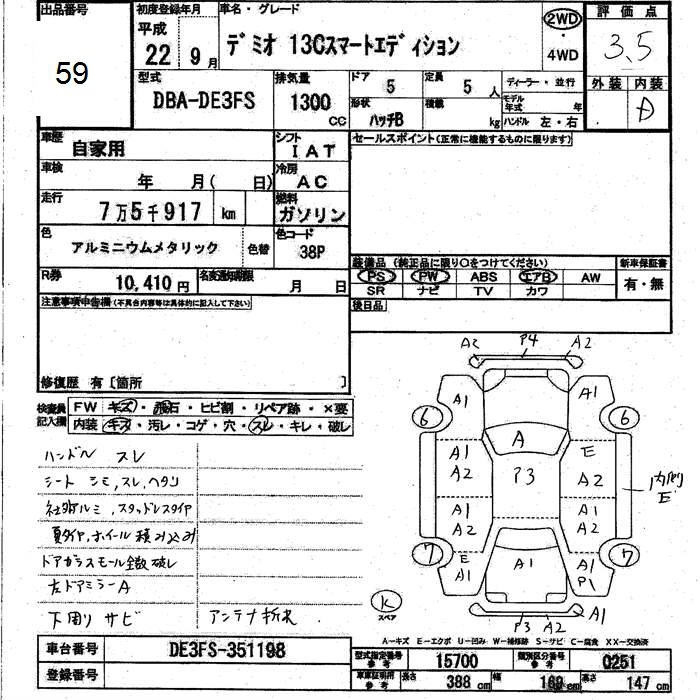 出品番号
59
初度登録年月
平成
22 年 9 月
車名・グレード
デミオ 13Cスマートエディション
2WD
・
4WD
評価点
3.5
外装 内装
D
型式
DBA-DE3FS
排気量
1300 CC
ドア 5
定員 5 人
形状 ハッチB
積載 kg
ディーラー・並行
モデル年式 年
ハンドル 左・右
車歴
自家用
シフト
IAT
車検
年 月( 日)
冷房
AC
走行
7万5千917 km
燃料
ガソリン
色
アルミニウムメタリック
色替
色コード
38P
R券
10,410円
名変通知期限
月 日
セールスポイント(正常に機能するものに限ります)
装備品(純正品に限り○をつけてください)
新車保証書
PS PW ABS エアB AW
SR ナビ TV カワ
有・無
後日品
注意事項申告欄(不具合内容等は具体的に記入して下さい)
修復歴 有 [箇所 ]
検査員記入欄
FW キズ・飛石・ヒビ割・リペア跡・×要
内装 キズ・汚レ・コゲ・穴・スレ・キレ・破レ
ハンドル スレ
シート シミ,スレ,ヘタリ
社外アルミ,スタッドレスタイヤ
夏タイヤ,ホイール積み込み
ドアガラスモール全数破レ
左ドアミラーA
下廻り サビ アンテナ折れ
A2 P4 A2
A1 A1
6 6
A
A1 E
A2 P3 A2
内側E
A1 A1
A2 A2
7 7
E
A1 A1 A1
P1
K
スペア
P3 A2 A1
A-キズ E-エクボ U-凹み W-補修跡 S-サビ C-腐食 XX-交換済
車台番号 DE3FS-351198
登録番号
型式指定番号 参考 15700
類別区分番号 参考 0251
車車証明用 参考 長さ 388 cm 幅 169 cm 高さ 147 cm